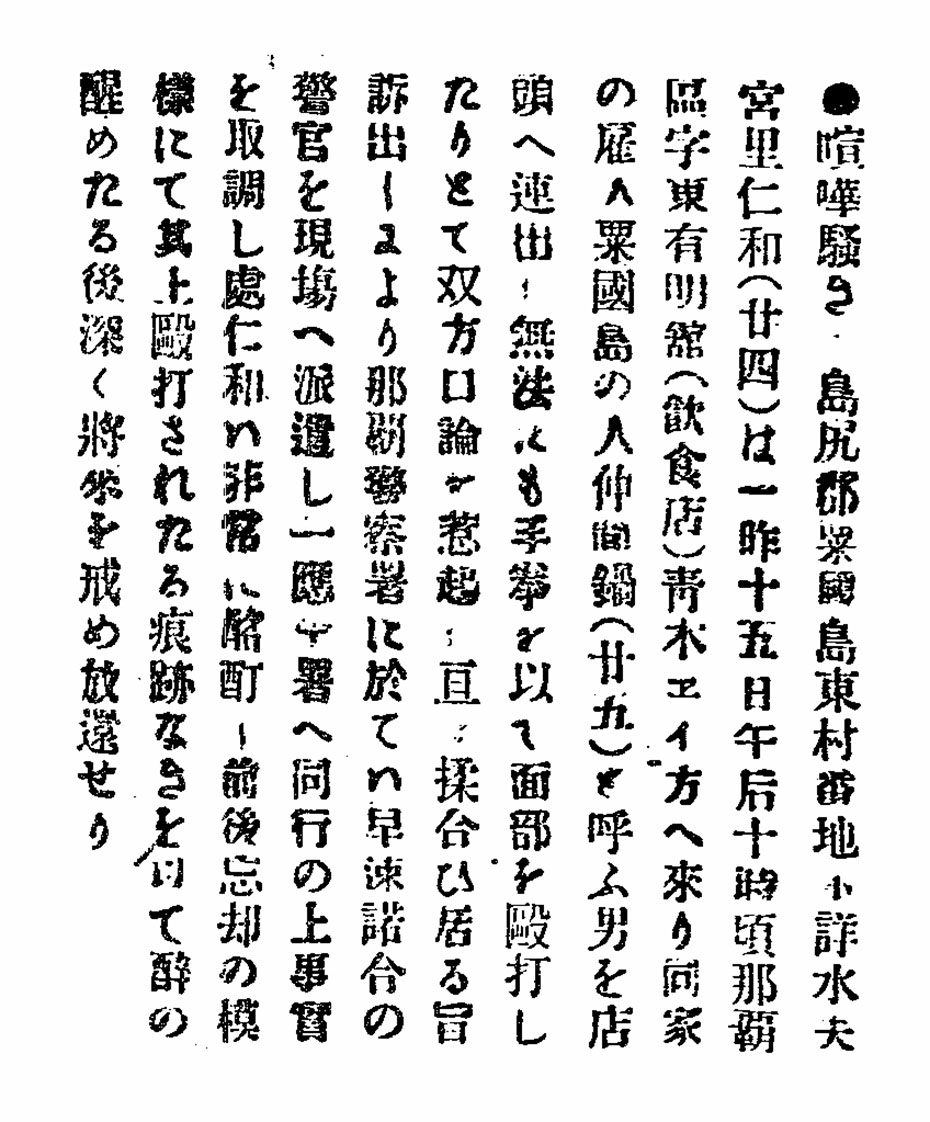 ●喧嘩騷き 島尻郡粟國島東村番地不詳水夫
宮里仁和(廿四)は一昨十五日午后十時頃那覇
區字東有明舘(飮食店)靑木エイ方へ來り同家
の雇人粟國島の人仲間鍋(廿五)と呼ふ男を店
頭へ連出し無法にも手拳を以て面部を毆打し
たりとて双方口論を惹起し互に揉合ひ居る旨
訴出しより那覇警察署に於てハ早速詰合の
警官を現塲へ派遣し一應本署へ同行の上事實
を取調し處仁和ハ非常に酩酊し前後忘却の模
樣にて其上毆打されたる痕跡なきを以て醉の
醒めたる後深く將來を戒め放還せり